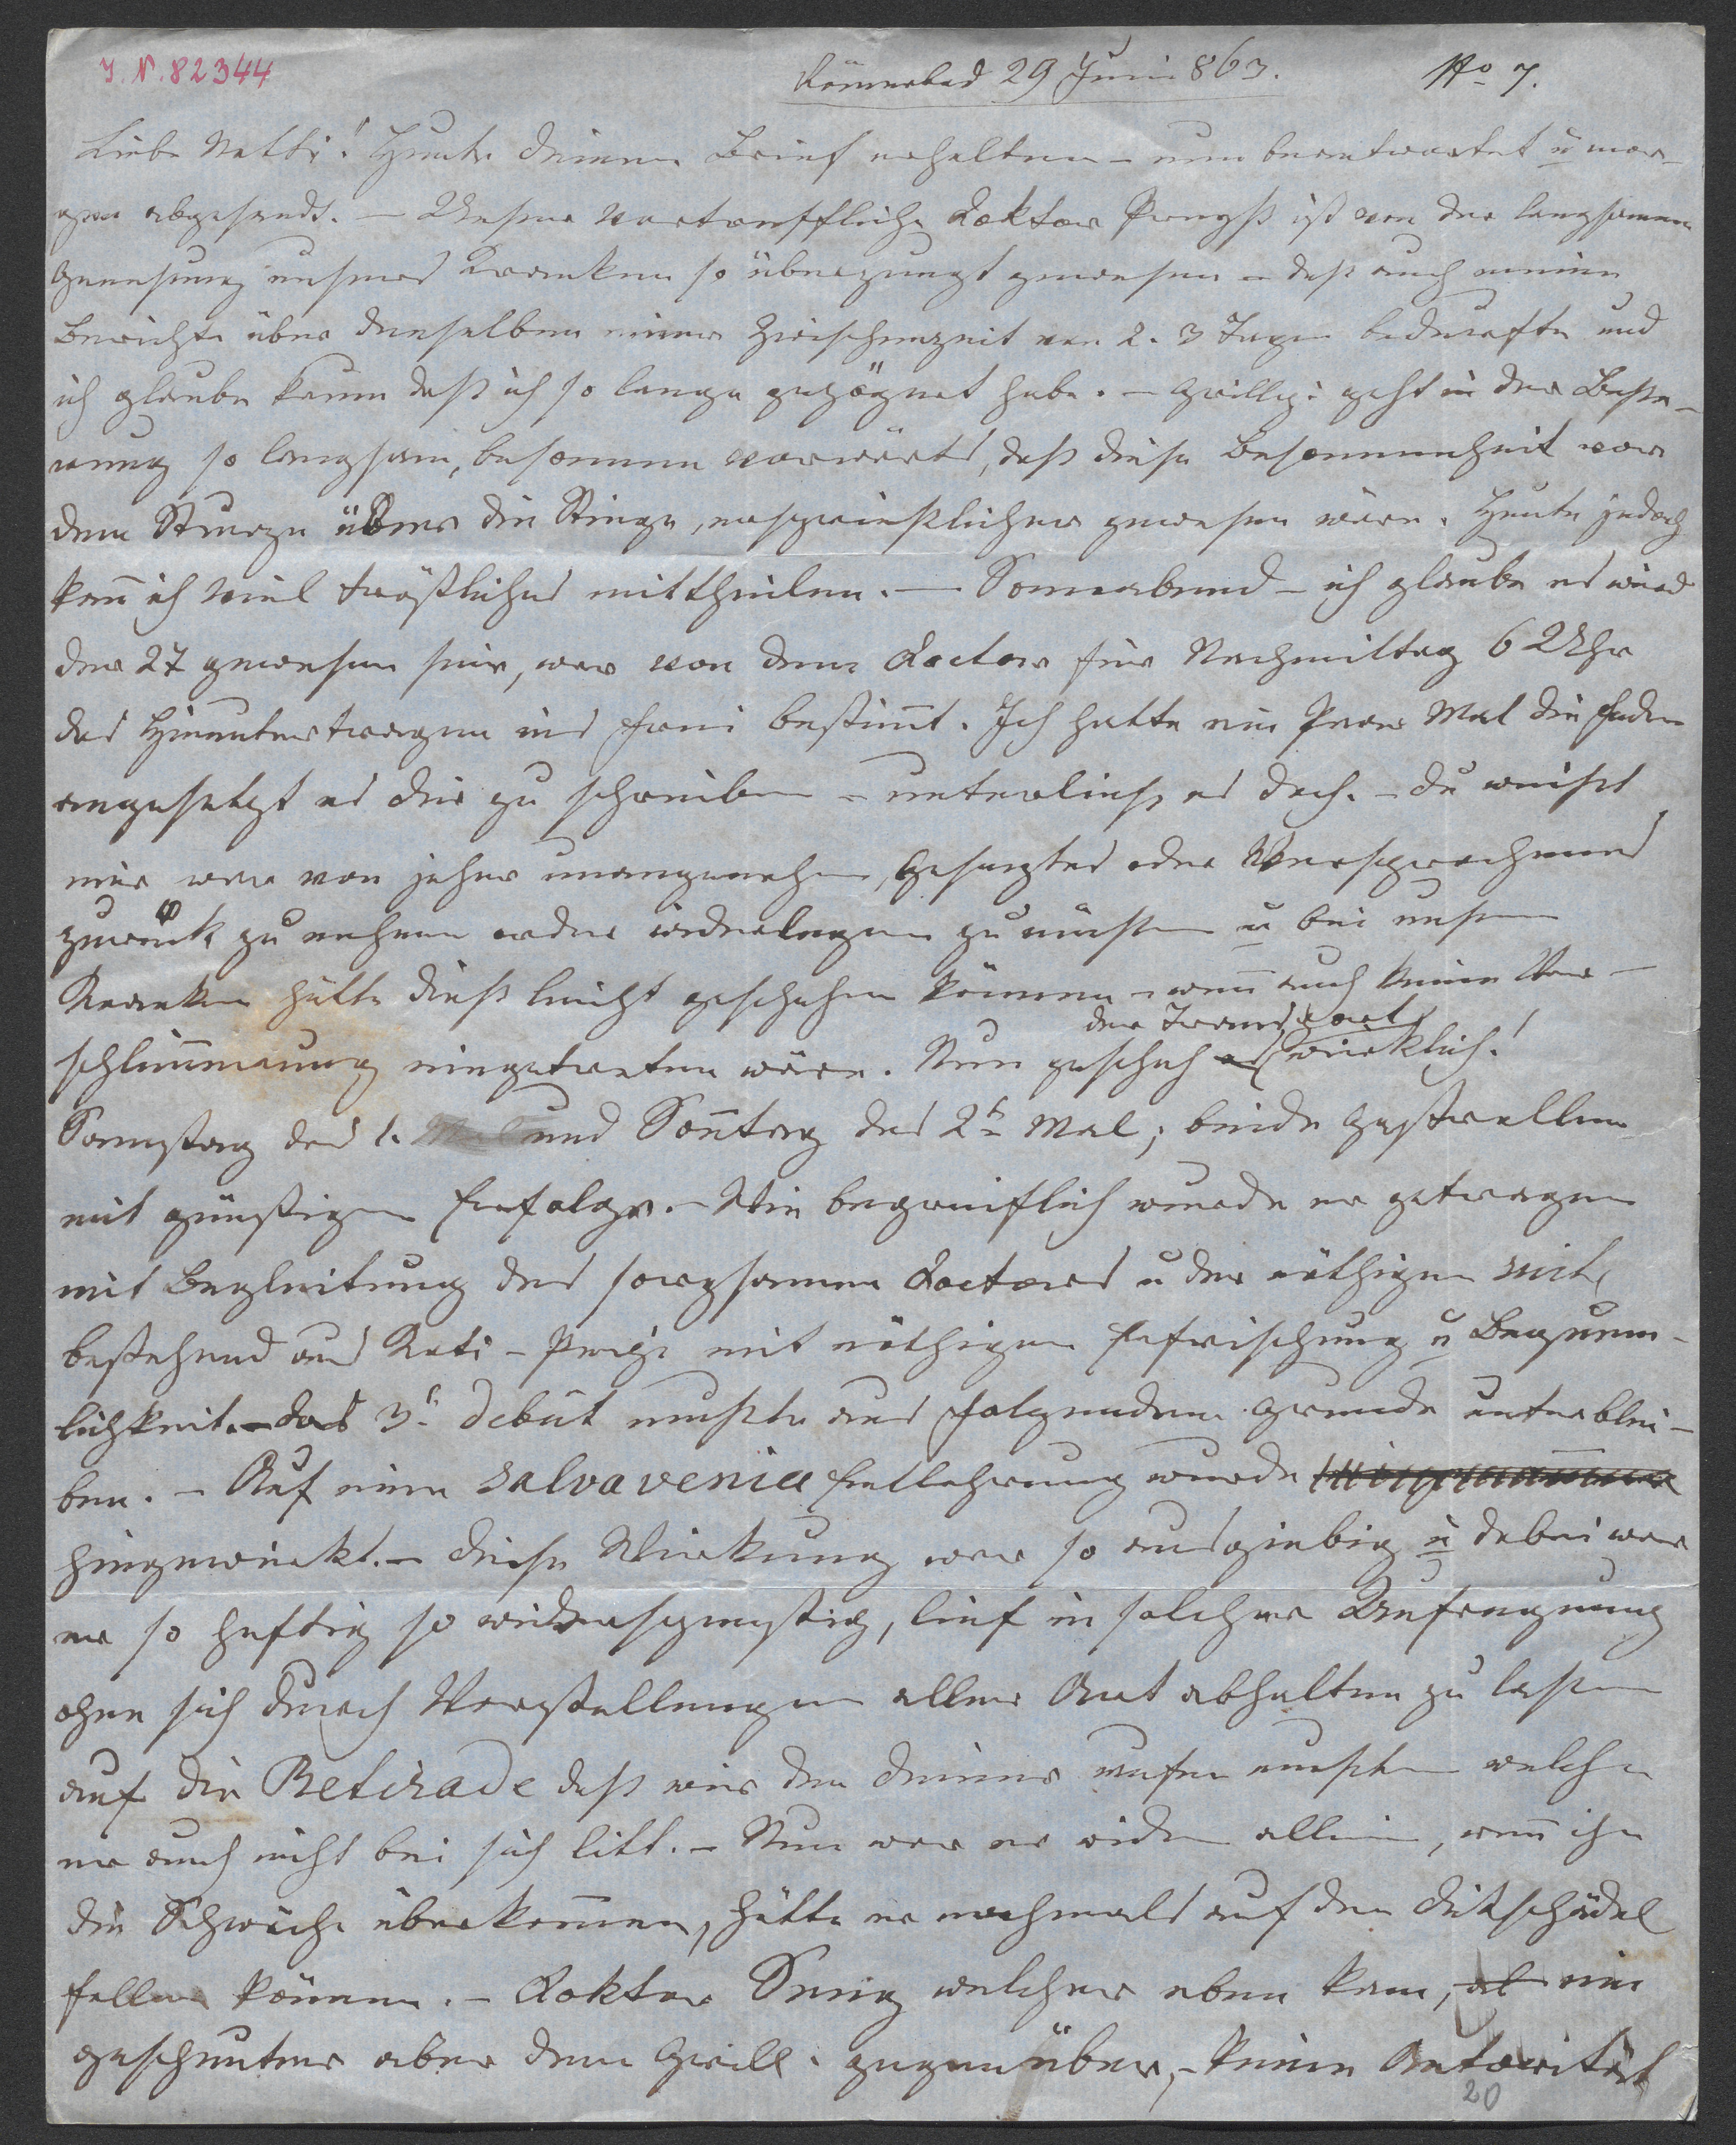 J. N. 82344
Römerbad 29 Juni 863. No 7.
Liebe Netti! Heute deinen Brief erhalten – nun beantwortet u mor-
gen abgesendt. – Unser vortrefflicher Doktor ist von der langsamen
Genesung unsers Kranken so überzeugt gewesen – daß auch meine
Berichte über denselben einer Zwischenzeit von 2. 3 Tagen bedurfte und
ich glaube kaum daß ich so lange gezögert habe. – Grillp: geht in der Besse-
rung so langsam, besonnen vorwärts, daß diese Besonnenheit vor
dem Sturze über die Stiege, ersprießlicher gewesen wäre. Heute jedoch
kann ich viel tröstliches mittheilen. – Sonnabend – ich glaube es wird
der 27 gewesen sein, war von dem Doctor für Nachmittag 6 Uhr
das Hinuntertragen ins Freie bestimt. Ich hatte ein Paar Mal die Feder
angesetzt es dir zu schreiben – unterließ es doch. – du weißt
mir war von jeher unangenehm, Gesagtes oder Versprochenes
zurück zu nehmen oder widerlegen zu müssen u bei unsern
Kranken hätte dieß leicht geschehen können – wenn auch keine Ver-
schlimmerung eingetreten wäre. Nun geschah der Transport wirklich!
Samstag das 1. Mal und Sontag das 2t Mal; beide Gastrollen
mit günstigem Erfolge. – Wie begreiflich wurde er getragen
mit Begleitung des sorgsamen Doctors u der nöthigen Suite
bestehend aus Kati – Pepi mit nöthigen Erfrischung u Bequem-
lichkeit. – das 3t debüt mußte aus folgendem Grunde unterblei-
ben. – Auf eine salva venia Entlehrung wurde
hingewirkt. – diese Wirkung war so ausgiebig u dabei war
er so heftig so widerspenstig, lief in solcher Aufregung
ohne sich durch Vorstellungen aller Art abhalten zu lassen
auf die Retirade daß wir den Diener rufen mußten welchen
er auch nicht bei sich litt. – Nun war er wider allein, wenn ihn
die Schwäche überkommen, hätte er nochmals auf den Dikschädel
fallen können. – Doktor welcher eben kam, ein
gescheuter aber dem Grillp. gegenüber, – keine Autorität
20